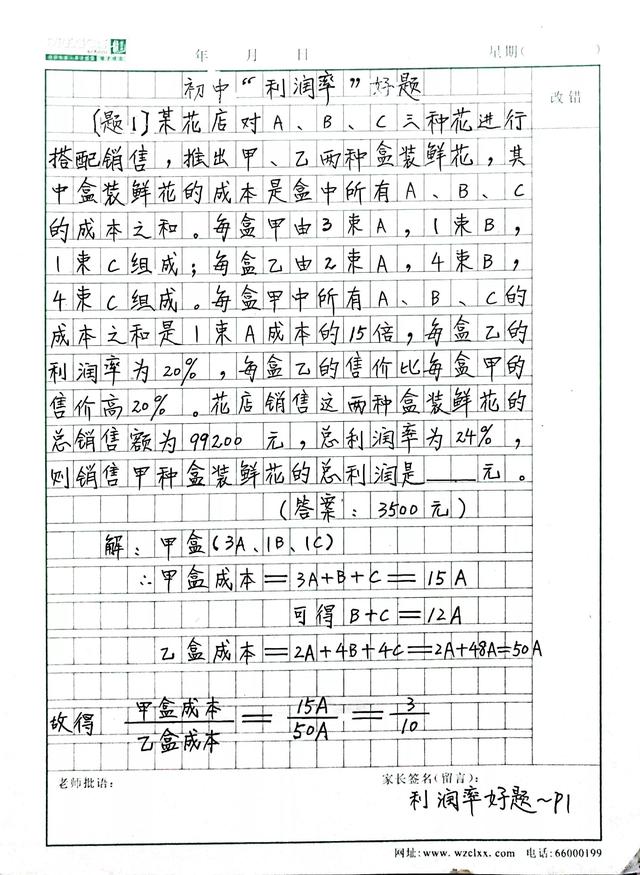 年 月 日 星期( )
初中“利润率”好题
改错
[题1]某花店对A、B、C三种花进行
搭配销售，推出甲、乙两种盒装鲜花，其
中盒装鲜花的成本是盒中所有A、B、C
的成本之和。每盒甲由3束A，1束B，
1束C组成；每盒乙由2束A，4束B，
4束C组成。每盒甲中所有A、B、C的
成本之和是1束A成本的15倍，每盒乙的
利润率为20%，每盒乙的售价比每盒甲的
售价高20%。花店销售这两种盒装鲜花的
总销售额为99200元，总利润率为24%，
则销售甲种盒装鲜花的总利润是____元。
(答案：3500元)
解：甲盒(3A、1B、1C)
∴甲盒成本=3A+B+C=15A
可得B+C=12A
乙盒成本=2A+4B+4C=2A+48A=50A
故得 甲盒成本/乙盒成本 = 15A/50A = 3/10
老师批语： 家长签名(留言)：
利润率好题~P1
网址:www.wzclxx.com 电话:66000199